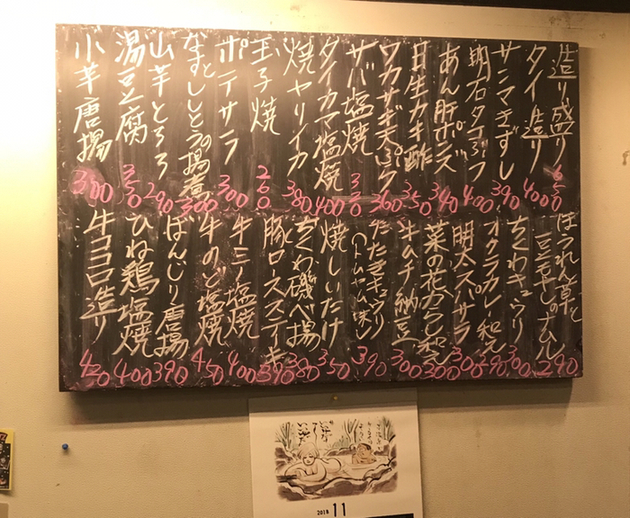 造り盛り 650
タイ造り 400
サンマきずし 390
明石タコブツ 400
あん肝ポン酢 390
生カキ酢 350
ワカサギ天ぷら 360
サバ塩焼 350
タイカマ塩焼 400
焼ヤリイカ 380
玉子焼 260
ポテサラ 300
なすとししとうの揚煮 300
山芋とろろ 290
湯豆腐 350
小芋唐揚 300
ほうれん草と
豆モヤシのナムル 290
ちくわキュウリ 300
オクラカレー和え 390
明太スパサラ 300
菜の花からし和え 300
牛ユッケ納豆
たたきキュウリ
(トムヤム味) 390
焼しいたけ 350
ちくわ磯べ揚 380
豚ロースステーキ 390
牛ミノ塩焼 400
牛のど塩焼 450
ぼんじり唐揚 390
ひね鶏塩焼 400
牛ココロ造り 420
2018 11